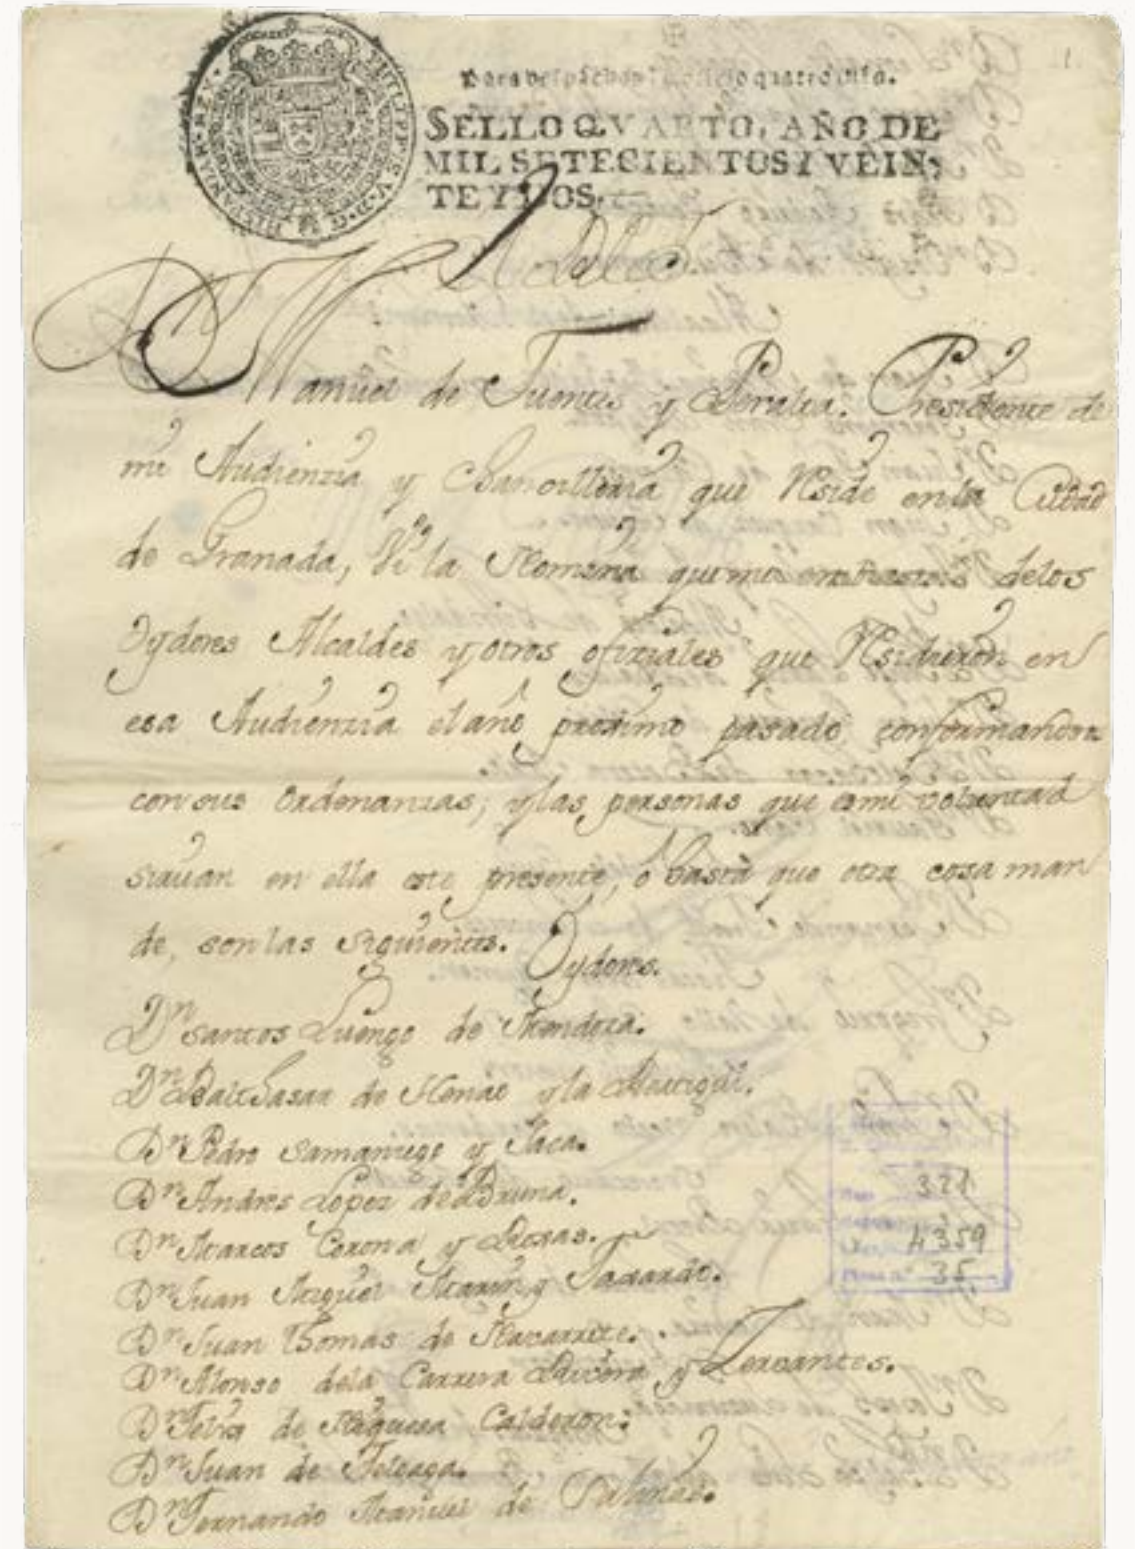 1.
Para despachos de oficio quatro mrs.
SELLO QVARTO, AÑO DE
MIL SETECIENTOS Y VEIN-
TE Y DOS.
El Rey
Dn Manuel de Fuentes y Peralta. Presidente de
mi Audienzia y Chanzilleria que Reside en la Ciudad
de Granada, Vi la Nomina que me embiasteis delos
Oydores Alcaldes y otros ofiziales que Residieron en
esa Audienzia el año proximo pasado conformandoa
con sus ordenanzas, y las personas que es mi voluntad
siruan en ella este presente, o hasta que otra cosa man
de, son las siguientes. Oydores.
Dn Santos Luengo de Mendoza.
Dn Balthasar de Henao y la
Dn Pedro Samaniego y Jaca.
Dn Andres Lopez de Bruna.
Dn Marcos Corona y Rosas.
Dn Juan Miguel Marin y
Dn Juan Thomas de Navarrete.
Dn Alonso dela Carrera Rivera y Zervantes.
Dn de Miguesa Calderon:
Dn Juan de
Dn Fernando Manuel de Palmas.
321
4359
35